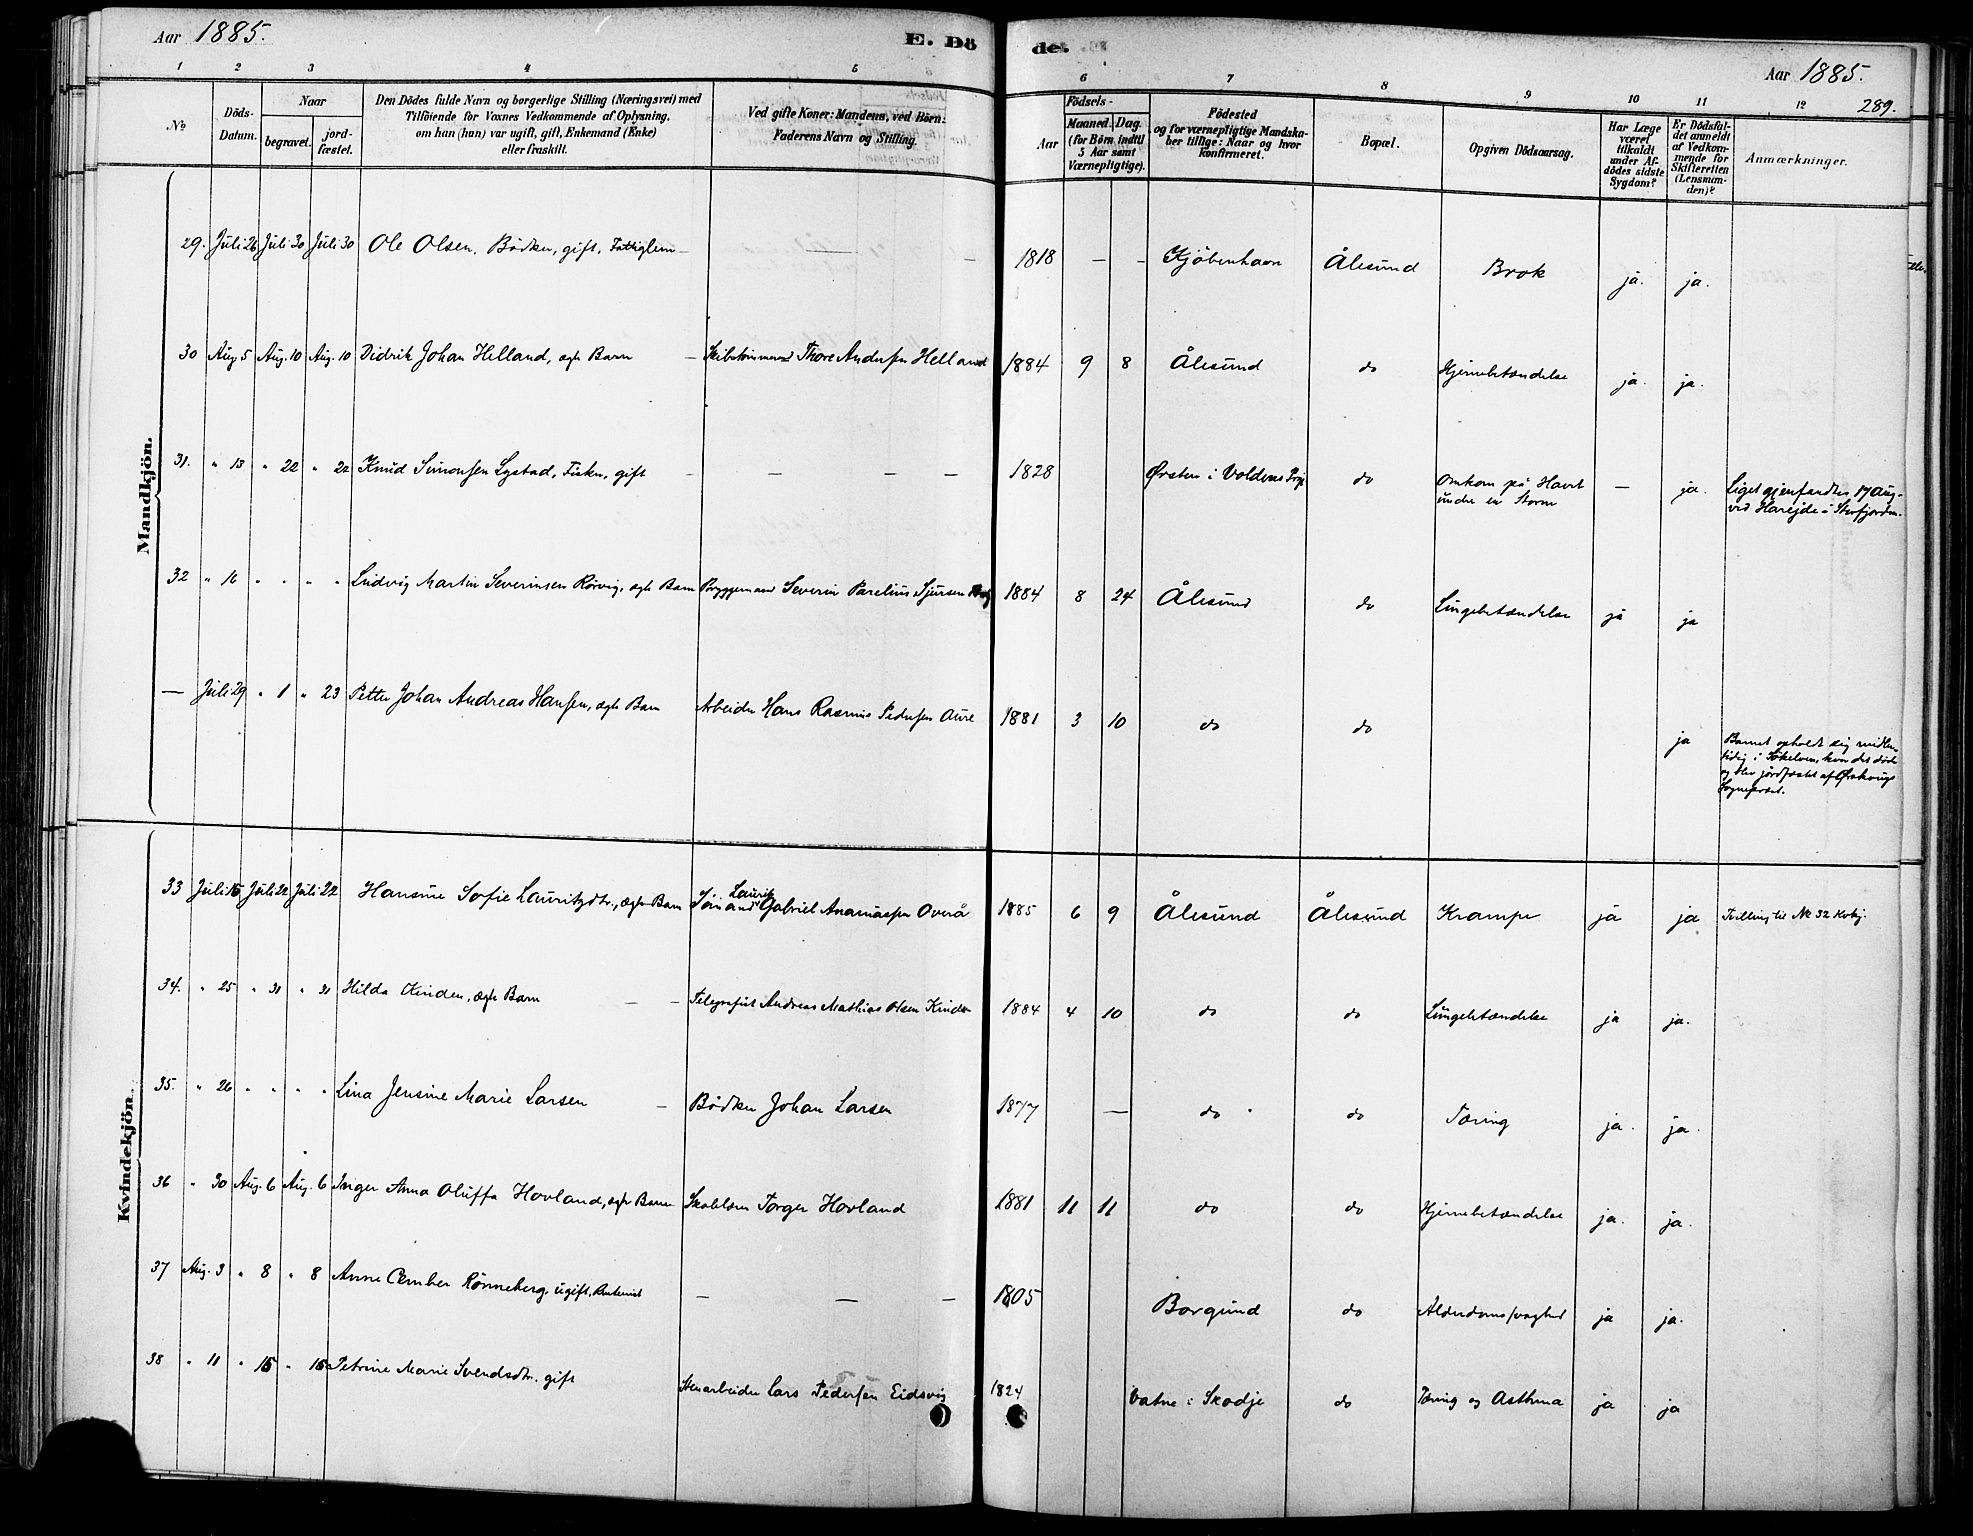 Aar 1885.
E. Dö
de.
Aar 1885.
289.
1 2 3 4 5 6 7 8 9 10 11 12
No
Döds-Datum.
Naar
begravet.
jord-fæstet.
Den Dödes fulde Navn og borgerlige Stilling (Næringsvei) med
Tilföiende for Voxnes Vedkommende af Oplysning,
om han (hun) var ugift, gift, Enkemand (Enke)
eller fraskilt.
Ved gifte Koner: Mandens, ved Börn:
Faderens Navn og Stilling.
Födsels-
Aar
Maaned.
Dag.
(for Börn indtil
5 Aar samt
Værnepligtige).
Födested
og for værnepligtige Mandska-
ber tillige: Naar og hvor
Konfirmeret.
Bopæl.
Opgiven Dödsaarsag.
Har Læge
været
tilkaldt
under Af-
dödes sidste
Sygdom?
Er Dödsfal-
det anmeldt
af Vedkom-
mende for
Skifteretten
(Lensman-
den)?
Anmærkninger.
Mandkjön.
29. Juli 26 Juli 30 Juli 30 Ole Olsen, Bödker, gift, Fattiglem — — 1818 — — Kjöbenhavn Ålesund Brok ja. ja.
30 Aug 5 Aug. 10 Aug. 10 Didrik Johan Helland, ægte Barn — Skibstömmermand Thore Andersen Helland 1884 9 8 Ålesund do Hjernebetændelse ja. ja.
31. " 13 " 22 " 22 Knud Simonsen Lystad, Fisker, gift — — — — 1828 Ørsten i Voldens Prgj do Omkom på Havet
under en Storm — ja. Liget gjenfandtes 17 Aug.
ved Hareide i Storfjorden.
32 " 16 " " " " Ludvig Martin Severinsen Rörvig, ægte Barn Bryggemand Severin Parelius Sjursen 1884 8 24 Ålesund do Lungebetændelse ja ja
— Juli 29 " 1 " 23 Petter Johan Andreas Hansen, ægte Barn Arbeider Hans Rasmus Pedersen Aure 1881 3 10 do do ja Barnet opholdt sig midler-
tidig i Sökelven, hvor det døde
og blev jordfæstet af Ørskougs
Sognepræst.
Kvindekjön.
33 Juli 15 Juli 22 Juli 22 Hansine Sofie Lauritzdtr., ægte Barn Lauritz
Gabriel Ananiassen Overå 1885 6 9 Ålesund Ålesund Krampe ja ja Tvilling til No 32 Kvkj.
34. " 25 " 31 " 31 Hilda Kinden, ægte Barn — — Telegrafist Andreas Mathias Olsen Kinden 1884 4 10 do do Lungebetændelse ja ja.
35. " 26 " " " " Lina Jensine Marie Larsen — Bödker Johan Larsen 1877 — do do Tæring ja. ja.
36 " 30 Aug. 6 Aug. 6 Inger Anna Oluffa Hovland, ægte Barn Skolelærer Torger Hovland 1881 11 11 do do Hjernebetændelse ja. ja.
37 Aug. 3 " 8 " 8 Anne Cember Rönneberg, ugift, — — — 1805 Borgund do Alderdomssvaghed ja ja.
38 " 11 " 15 " 15 Petrine Marie Svendsdtr. gift Stenarbeider Lars Pedersen Eidsvig 1824 Vatne i Skodje do Tæring og Asthma ja ja